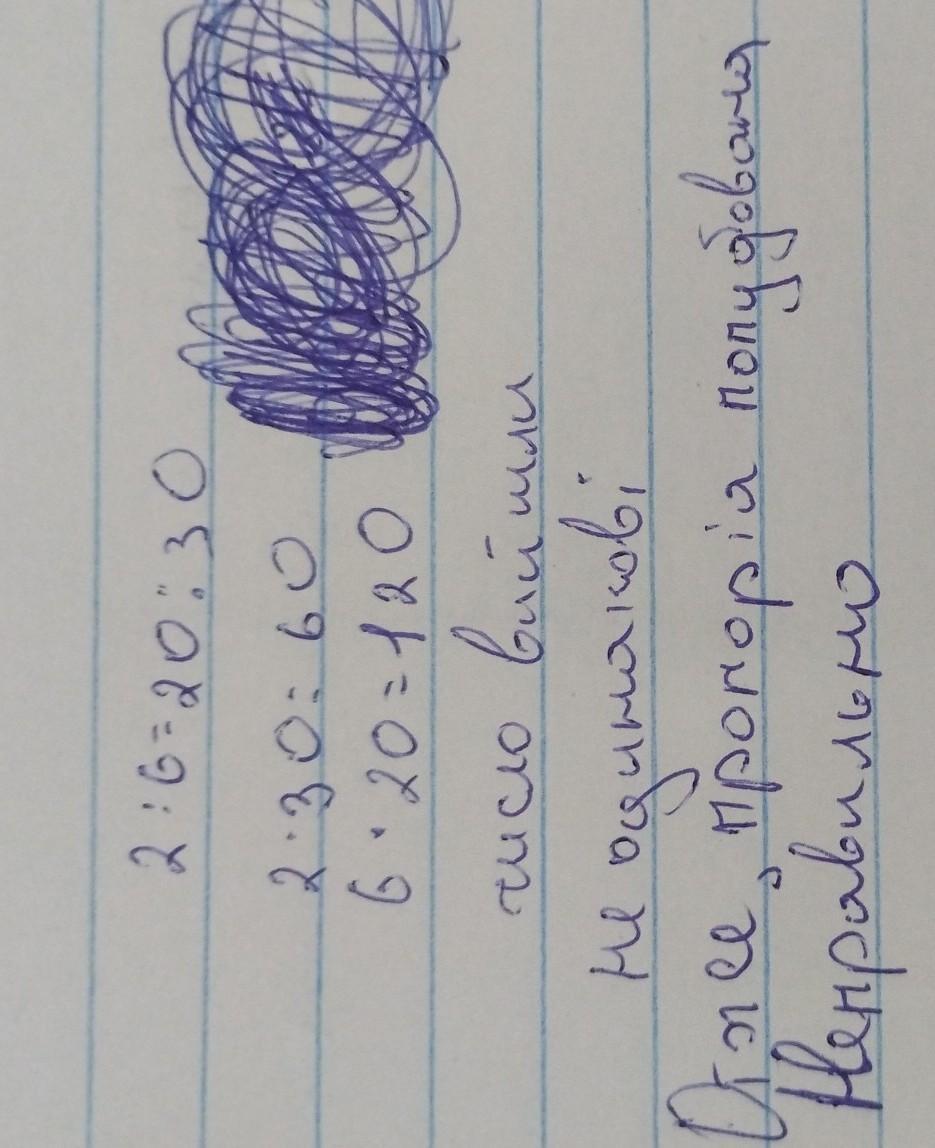 2:6=20:30
2·30=60
6·20=120
число вийшли
не одинакові
Отже, пропорія попудована
Неправильно